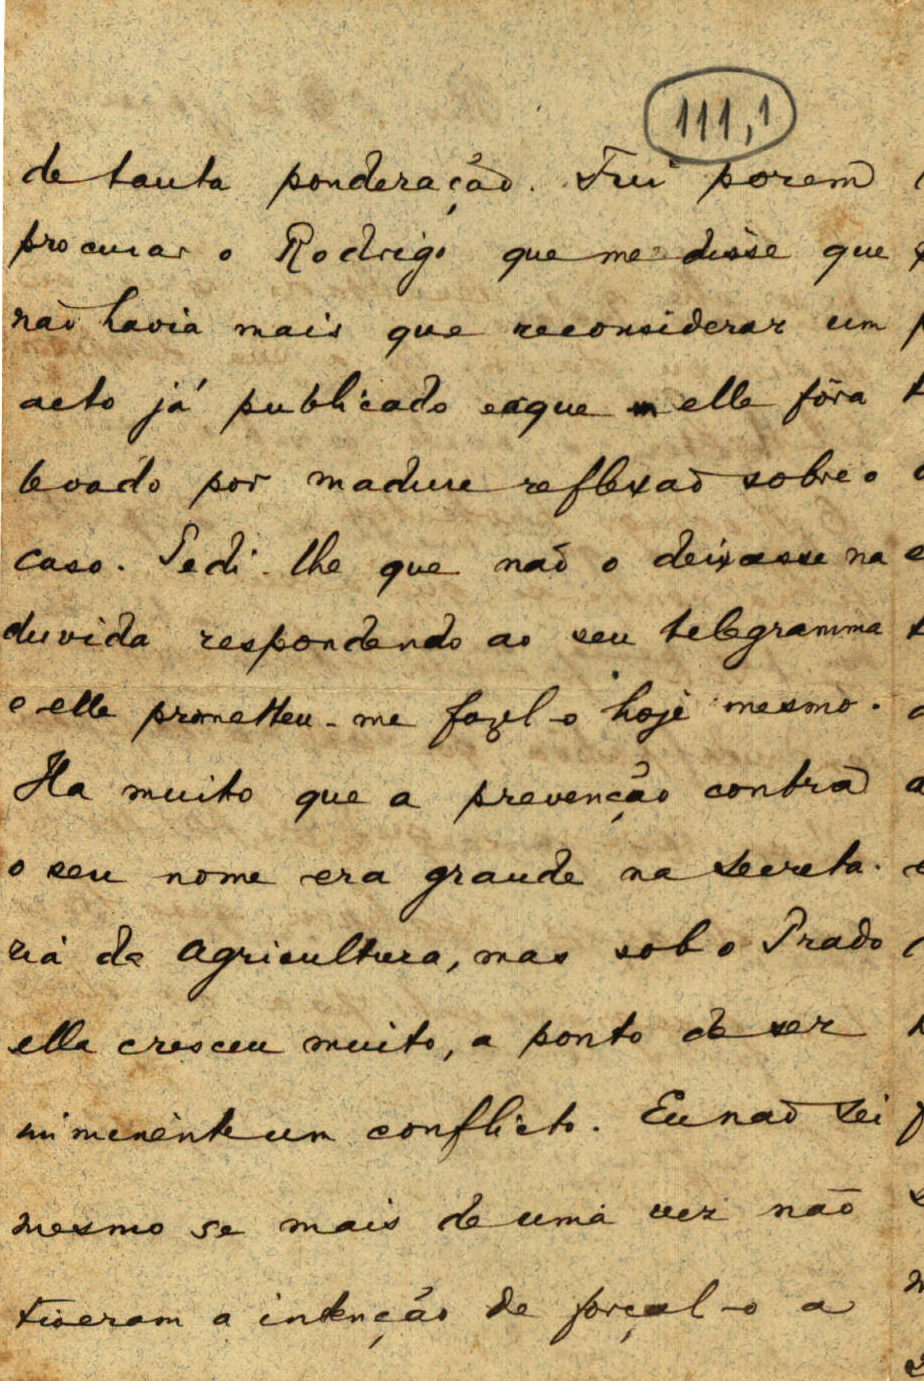 111,1
de tanta ponderação. Fui porem
procurar o Rodrigo que me disse que
não havia mais que reconsiderar um
acto já publicado e que elle fôra
levado por madura reflexão sobre o
caso. Pedi-lhe que não o deixasse na
duvida respondendo ao seu telegramma
e elle prometteu-me fazel-o hoje mesmo.
Ha muito que a prevenção contra
o seu nome era grande na Secreta-
ria da Agricultura, mas sob o Prado
ella cresceu muito, a ponto de ser
imminente um conflicto. Eu não sei
mesmo se mais de uma vez não
tiveram a intenção de forçal-o a